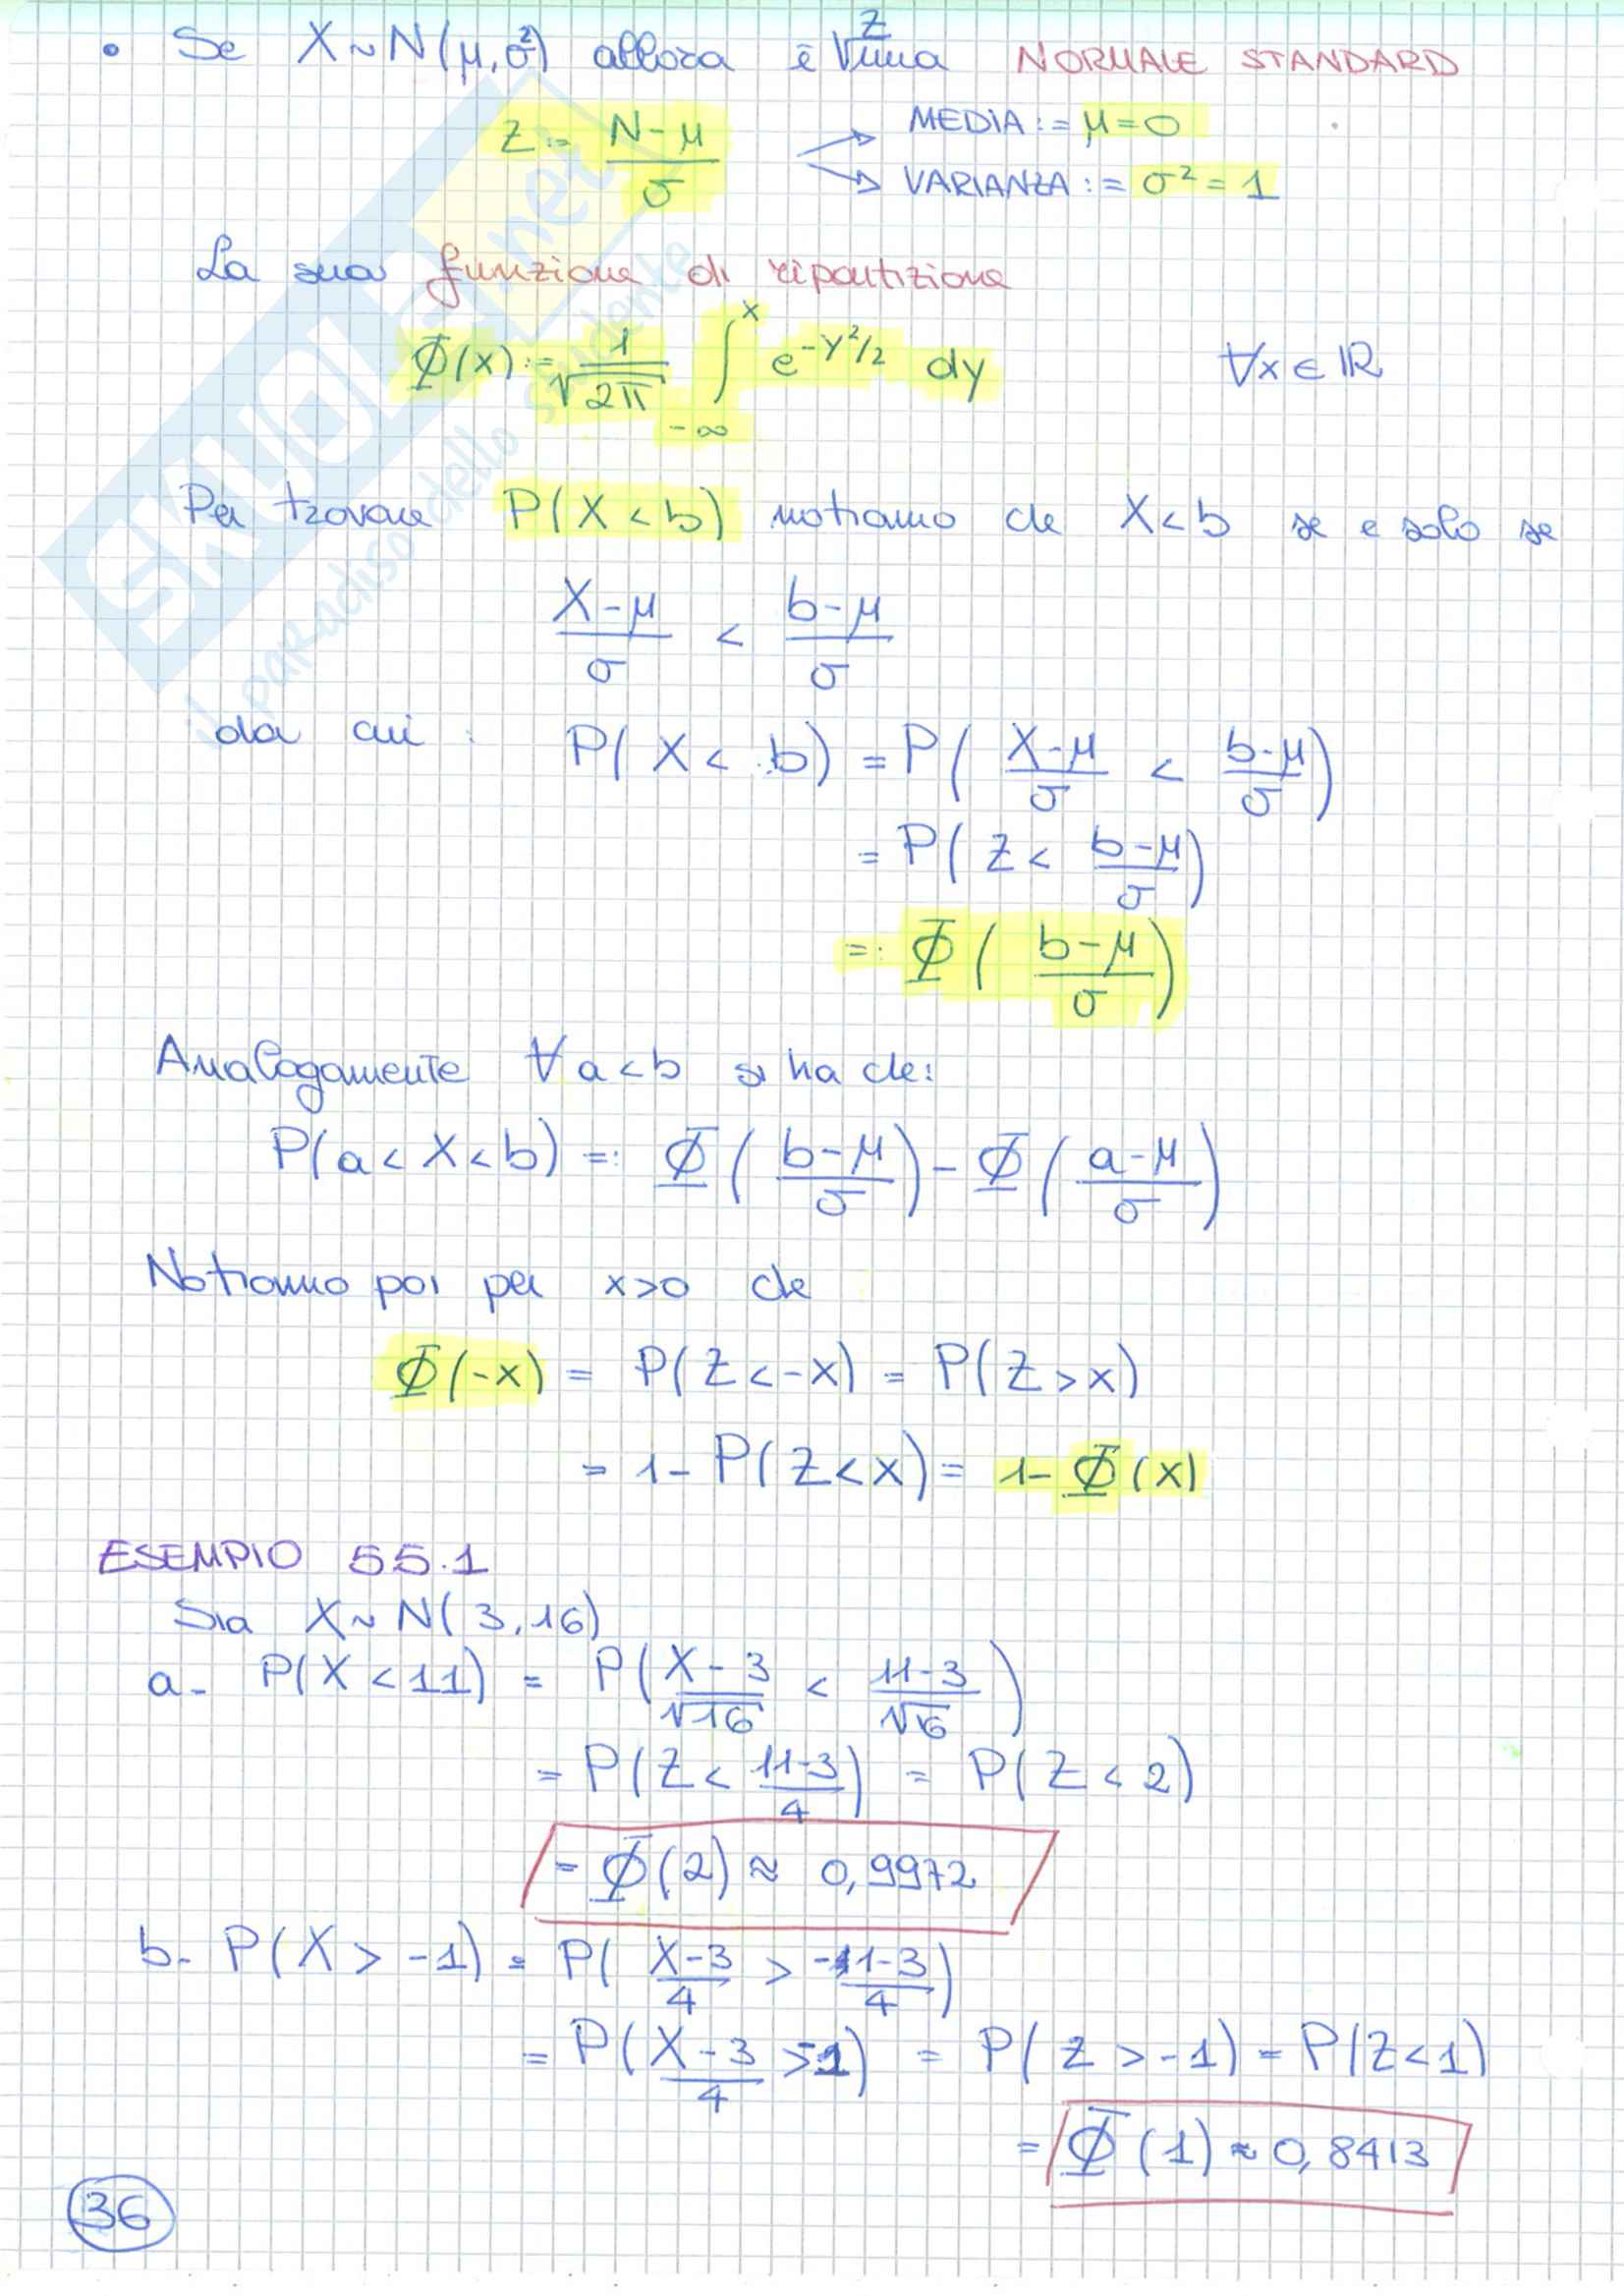 • Se X ~ N(μ, σ²) allora è Z una NORMALE STANDARD
Z := (N-μ)/σ
MEDIA := μ = 0
VARIANZA := σ² = 1
La sua funzione di ripartizione
Φ(x) := 1/√2π ∫_{-∞}^{x} e^{-y²/2} dy ∀x ∈ ℝ
Per trovare P(X < b) notiamo che X < b se e solo se
(X-μ)/σ < (b-μ)/σ
da cui : P(X < b) = P((X-μ)/σ < (b-μ)/σ)
= P(Z < (b-μ)/σ)
=: Φ((b-μ)/σ)
Analogamente ∀a<b si ha che:
P(a < X < b) =: Φ((b-μ)/σ) - Φ((a-μ)/σ)
Notiamo poi per x>0 che
Φ(-x) = P(Z < -x) = P(Z > x)
= 1 - P(Z < x) = 1 - Φ(x)
ESEMPIO 55.1
Sia X ~ N(3, 16)
a- P(X < 11) = P((X-3)/√16 < (11-3)/√16)
= P(Z < (11-3)/4) = P(Z < 2)
= Φ(2) ≈ 0,9972
b- P(X > -1) = P((X-3)/4 > (-1-3)/4)
= P((X-3)/4 > -1) = P(Z > -1) = P(Z < 1)
= Φ(1) ≈ 0,8413
36
SKUOLA.net
il paradiso dello studente